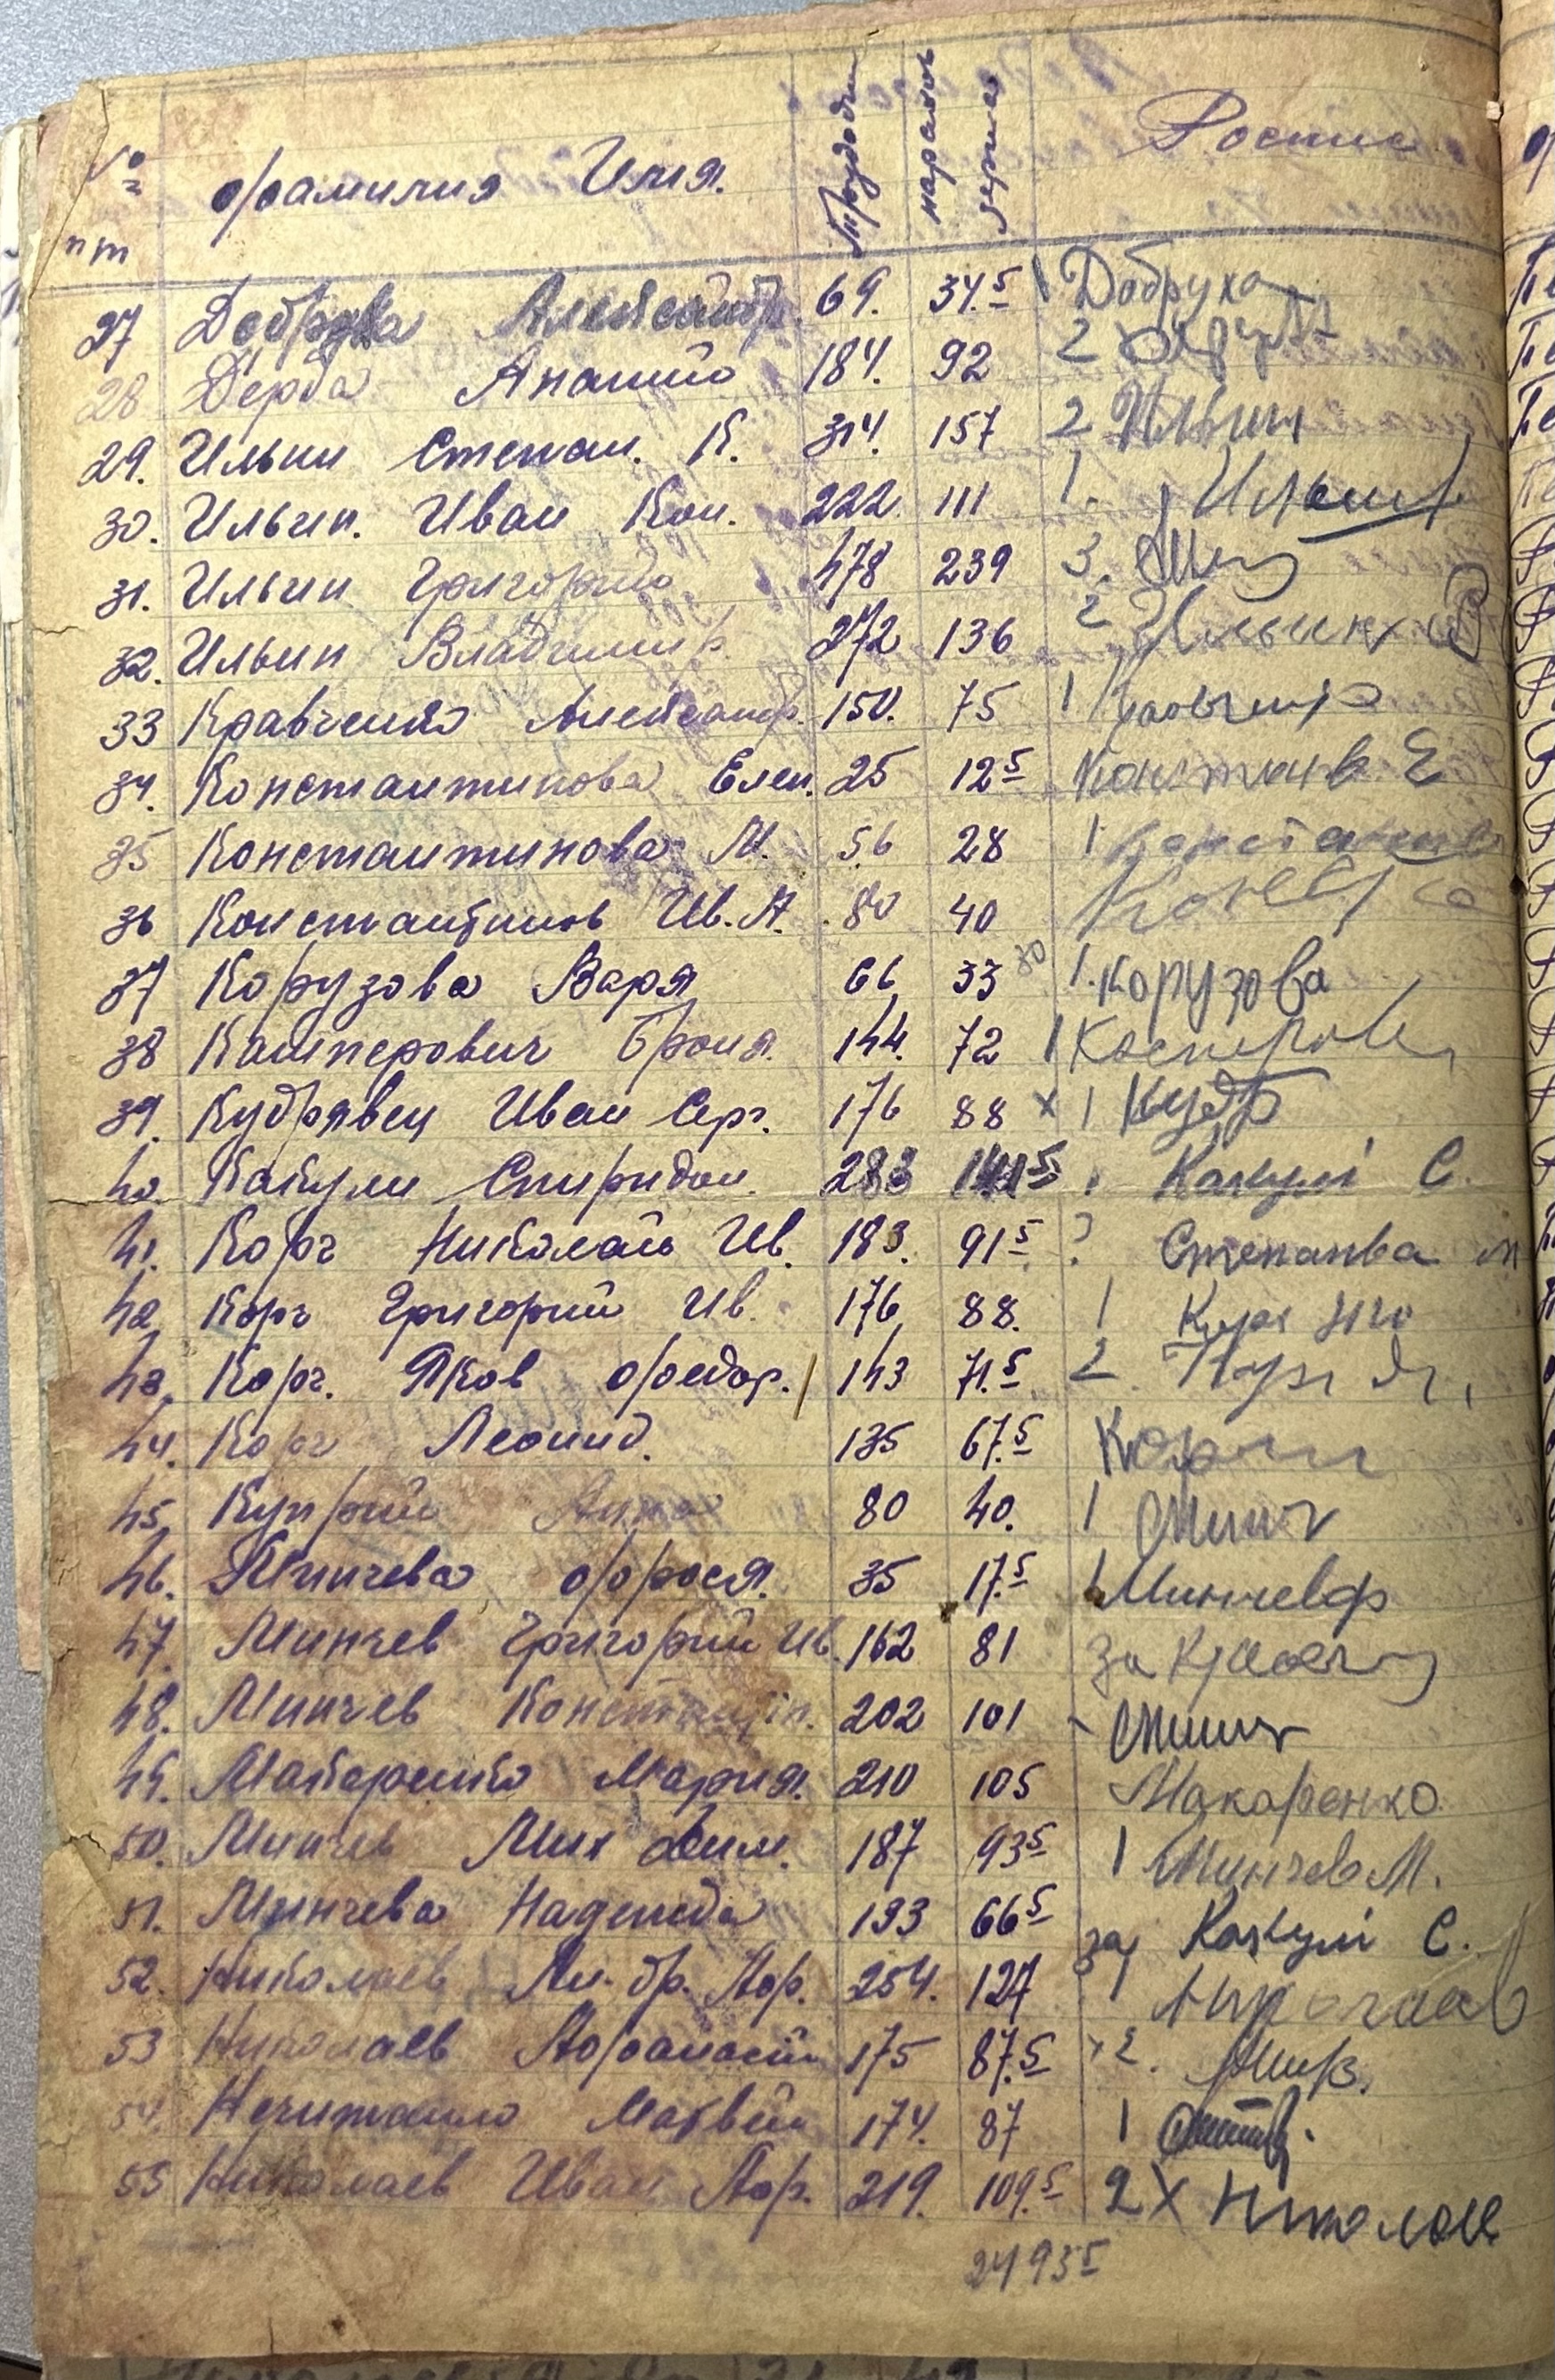 № пп Фамилия Имя. Трудодни нарахов зерна Роспис
27 Добруха Александр. 69. 34.5 1 Добруха
28 Дерба Ананий 184. 92 2
29. Ильин Степан. К. 314. 157 2 Ильин
30. Ильин. Иван Кон. 222. 111 1. Ильин
31. Ильин Григорий 478 239 3.
32. Ильин Владимир. 272 136 2 Ильин В
33 Кравченко Александр. 150. 75 1
34. Константинова Елен. 25 12 5 Констанв Е
35 Константинова М. 56 28 1
36 Константинов Ив. А. 80 40
37 Корузова Варя 66 33 30 1. Корузова
38 Кашперович Броня. 144. 72 1
39. Кудрявец Иван Сер. 176 88 х 1 Кудр
40. Какули Спиридон. 283 141 5 Какулі С.
41. Корч Николай Ив. 183. 91 5 Степанва
42 Корч Григорий Ив. 176 88. 1
43. Корч. Яков Федор. 143 71.5 2.
44. Корч Леонид. 135 67.5 Корч
45. Куприй Анна 80 40. 1
46. Минчева Фрося. 35 17.5 1 Минчевф
47. Минчев Григорий Ив. 162 81 за
48. Минчев Константин. 202 101
49. Макаренко Мария. 210 105 Макаренко
50. Минчев Мих Дим. 187 93 5 1 Минчев М.
51. Минчева Надежда 133 66 5 за Какулі С.
52. Николаев Ал-др. Аф. 254. 127 1 Николаев
53 Николаев Афанасий 175 87.5 х 2.
54. Нечитайло Матвей 174. 87 1
55 Николаев Иван Аф. 219. 109.5 2 х Николаев
2493 5